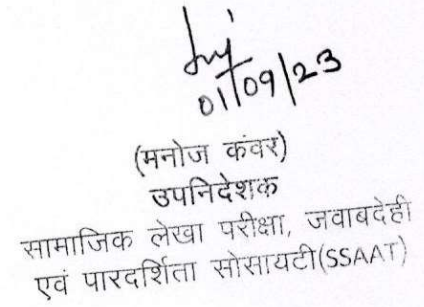 01/09/23
(मनोज कंवर)
उपनिदेशक
सामाजिक लेखा परीक्षा, जवाबदेही
एवं पारदर्शिता सोसायटी(SSAAT)